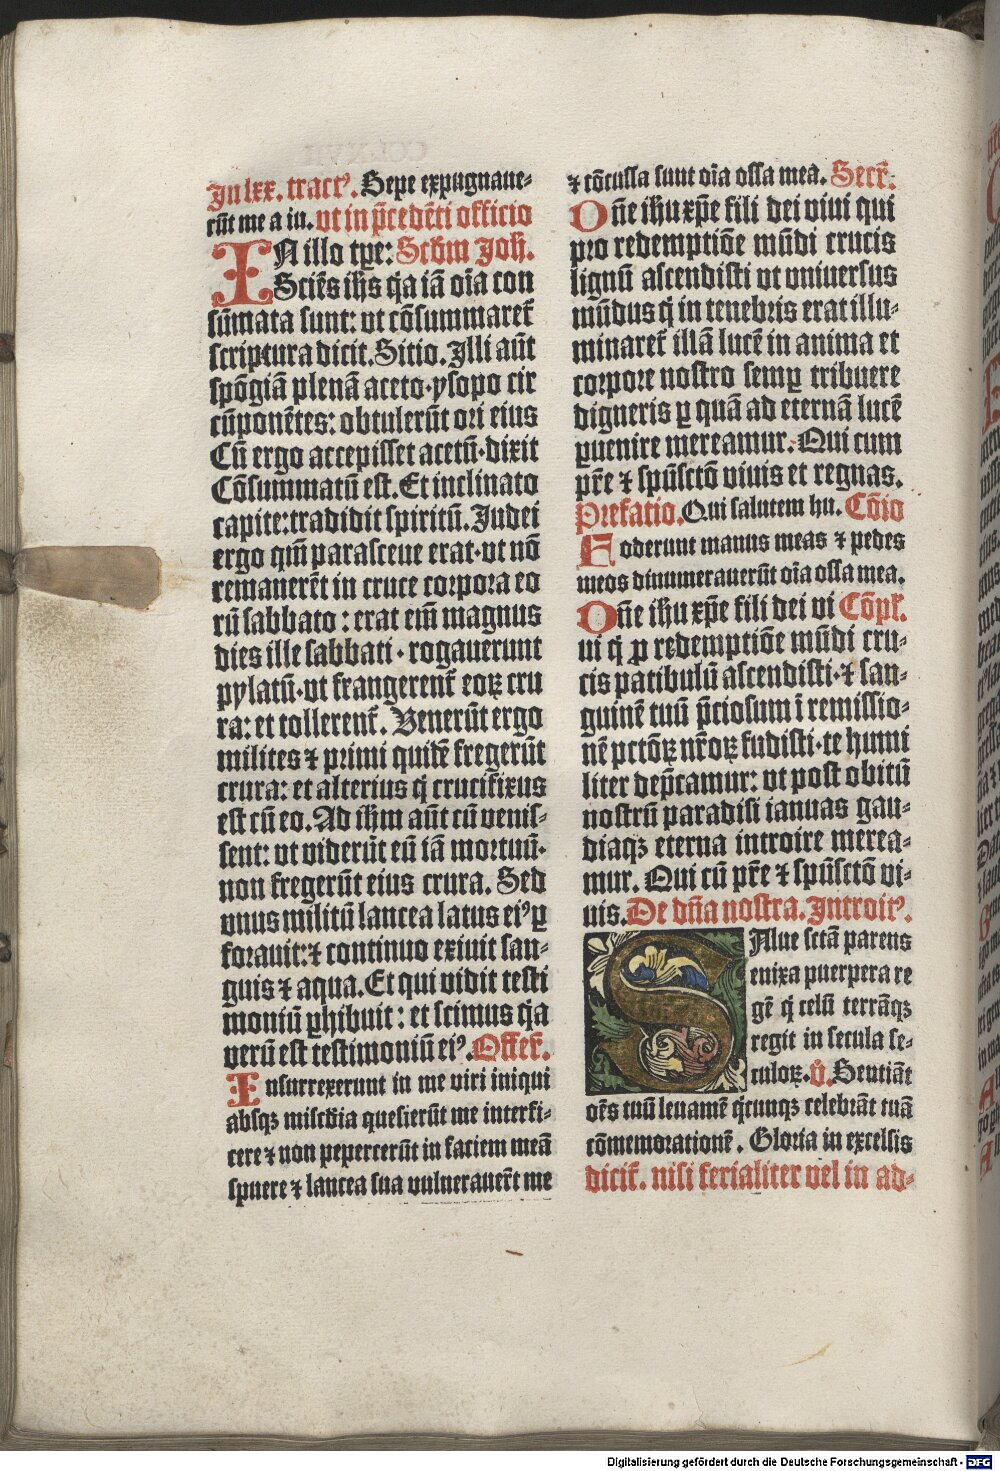 In lxx. tractꝰ. Sepe expugnaue⸗
rūt me a iu. vt in p̄cedēti officio
IN illo tpe: Scḋm Joh̄.
Sciēs ih̄s q̄a iā oīa con
sūmata sunt: vt cōsummaret᷑
scriptura dicit. Sitio. Illi aūt
spōgiā plenā aceto·ysopo cir
cūponētes: obtulerūt ori eius
Cū ergo accepisset acetū·dixit
Cōsummatū est. Et inclinato
capite: tradidit spiritū. Judei
ergo qm̄ parasceue erat·vt nō
remanerēt in cruce corpora eo
rū sabbato : erat em̄ magnus
dies ille sabbati · rogauerunt
pylatū·vt frangerent᷑ eoꝝ cru
ra: et tollerent᷑. Venerūt ergo
milites ⁊ primi quidē fregerūt
crura: et alterius q̄ crucifixus
est cū eo. Ad ih̄m aūt cū venis⸗
sent: vt viderūt eū iā mortuū·
non fregerūt eius crura. Sed
vnus militū lancea latus eiꝰ ꝑ
forauit: ⁊ continuo exiuit san⸗
guis ⁊ aqua. Et qui vidit testi
moniū ꝑhibuit : et scimus q̄a
verū est testimoniū eiꝰ. Offer᷑.
Insurrexerunt in me viri iniqui
absqꝫ misc̄dia quesierūt me interfi⸗
cere ⁊ non pepercerūt in faciem meā
spuere ⁊ lancea sua vulnerauer̄t me
⁊ cōcussa sunt oīa ossa mea. Secr̄.
Dn̄e ih̄u xp̄e fili dei viui qui
pro redemptiōe mūdi crucis
lignū ascendisti vt vniuersus
mūdus q̄ in tenebris erat illu⸗
minaret᷑ illā lucē in anima et
corpore nostro semꝑ tribuere
digneris ꝑ quā ad eternā lucē
ꝑuenire mereamur. Qui cum
pr̄e ⁊ spūsctō viuis et regnas.
Prefatio. Qui salutem hu. Cōio
Foderunt manus meas ⁊ pedes
meos dinumerauerūt oīa ossa mea.
Dn̄e ih̄u xp̄e fili dei vi Cōpl᷑.
ui q̄ ꝓ redemptiōe mūdi cru⸗
cis patibulū ascendisti·⁊ san⸗
guinē tuū p̄ciosum ī remissio⸗
nē pctōꝝ nr̄oꝝ fudisti·te humi
liter dep̄camur: vt post obitū
nostrū paradisi ianuas gau⸗
diaqꝫ eterna introire merea⸗
mur. Qui cū pr̄e ⁊ spūsctō vi⸗
uis. De dn̄a nostra. Introitꝰ.
SAlue sctā parens
enixa puerpera re
gē q̄ celū terrāqꝫ
regit in secula se⸗
culoꝝ. v̄. Sentiāt
oēs tuū leuamē q̄cunqꝫ celebrāt tuā
cōmemorationē. Gloria in excelsis
dicit᷑. nisi ferialiter vel in ad⸗
Digitalisierung gefördert durch die Deutsche Forschungsgemeinschaft - DFG